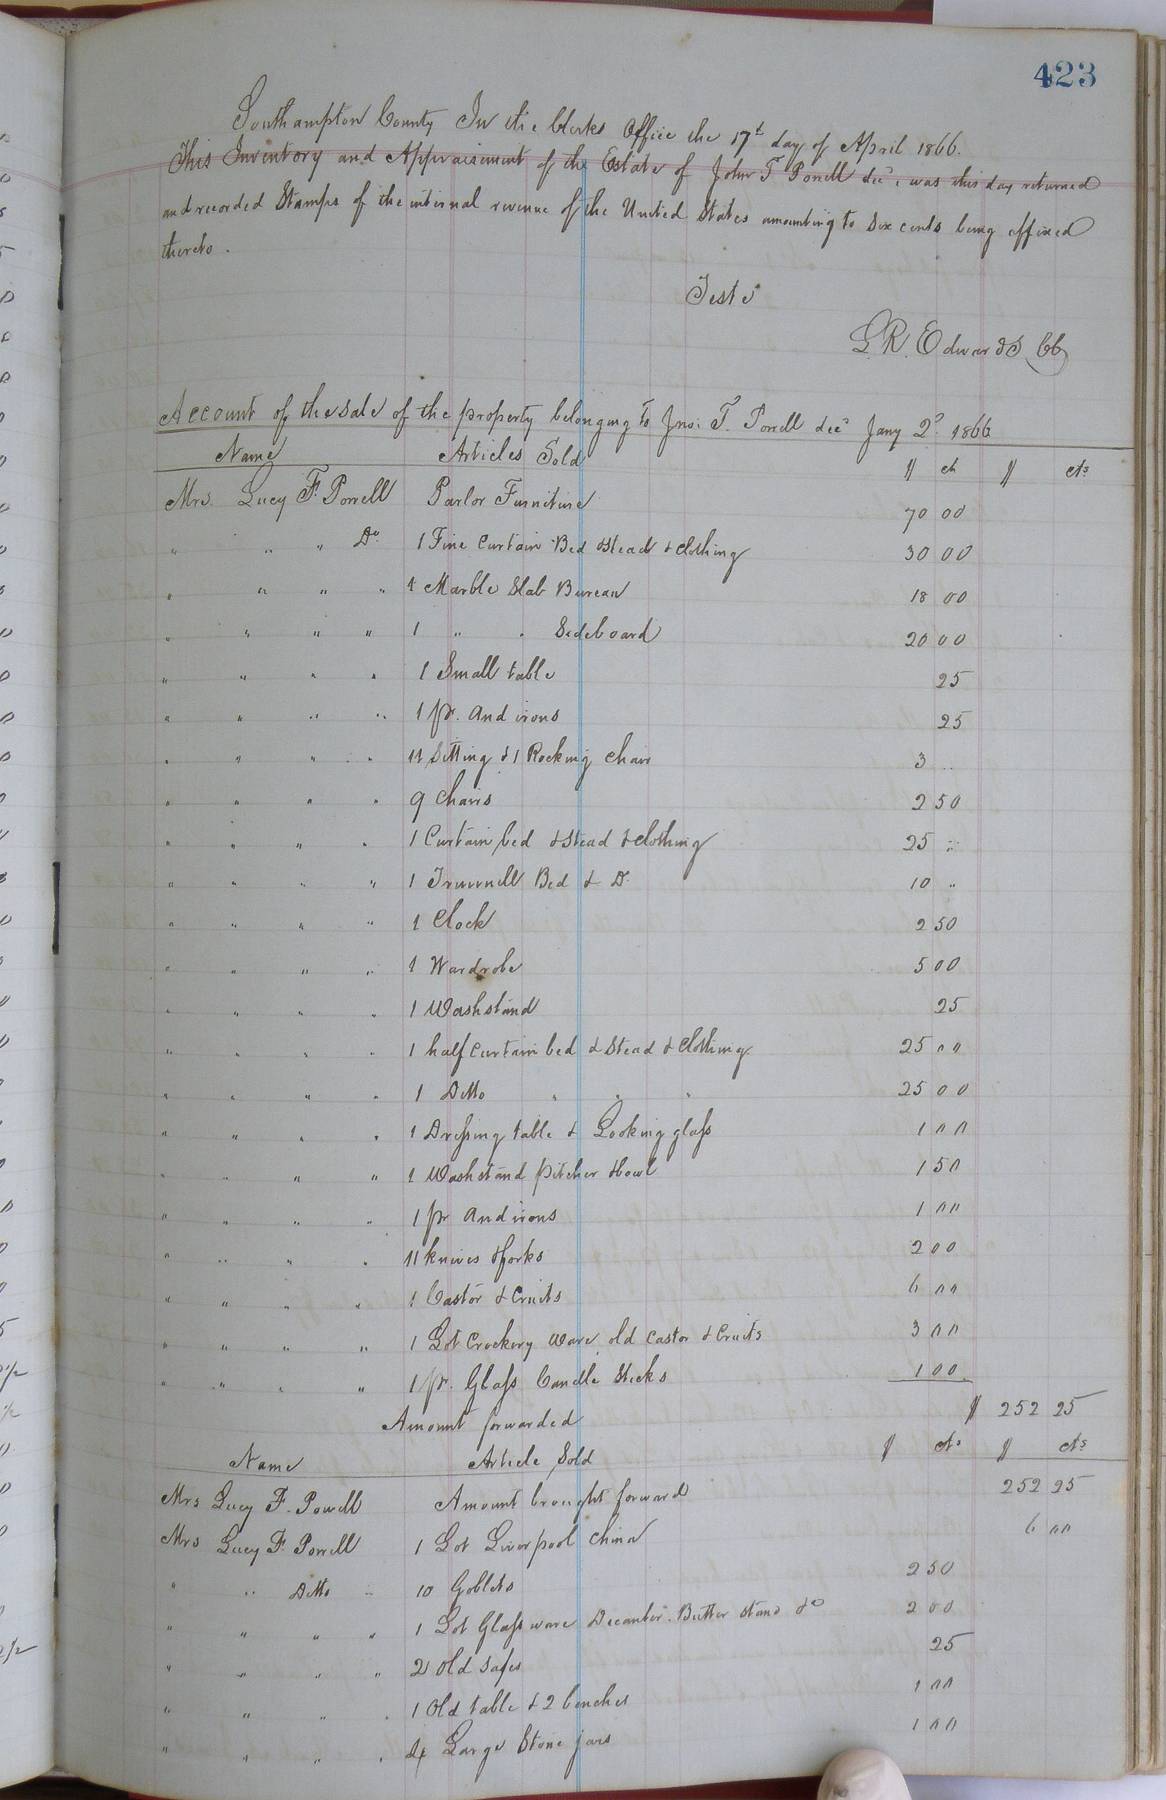 423
Southampton County In the Clerks Office the 17th day of April 1866.
This Inventory and Appraisement of the Estate of John T Powell decd was this day returned
and recorded Stamps of the internal revenue of the United States amounting to six cents being affixed
thereto.
Teste
L. R. Edwards CC
Account of the sale of the property belonging to Jno: T. Powell decd Jany 2d 1866
Name Articles Sold $ ct $ cts
Mrs. Lucy F. Powell Parlor Furniture 70 00
" " " Do 1 Fine Curtain Bed & Stead & Clothing 30 00
" " " " 1 Marble Slab Bureau 18 00
" " " " 1 " " Sideboard 20 00
" " " " 1 Small table 25
" " " " 1 pr. And irons 25
" " " " 11 Sitting & 1 Rocking chair 3 ..
" " " " 9 Chairs 2 50
" " " " 1 Curtain bed & stead & clothing 25 ..
" " " " 1 Trunnell Bed & Do 10 ..
" " " " 1 Clock 2 50
" " " " 1 Wardrobe 5 00
" " " " 1 Washstand 25
" " " " 1 half Curtain bed & Stead & Clothing 25 00
" " " " 1 Ditto " " " 25 00
" " " " 1 Dressing table & Looking glass 1 00
" " " " 1 Washstand pitcher & bowl 1 50
" " " " 1 pr And irons 1 00
" " " " 11 knives & forks 2 00
" " " " 1 Castor & Cruits 6 00
" " " " 1 Lot Crockery Ware, old Castor & Cruits 3 00
" " " " 1 pr. Glass Candle Sticks 1 00
Amount forwarded $ 252 25
Name Article Sold $ cts $ cts
Mrs Lucy F. Powell Amount brought forward 252 25
Mrs Lucy F. Powell 1 Lot Liverpool China 6 00
" " Ditto " 10 Goblets 2 50
" " " " 1 Lot Glass ware Decanter. Butter stand &c 2 00
" " " " 2 old Safes 25
" " " " 1 Old table & 2 benches 1 00
" " " " 4 Large Stone jars 1 00